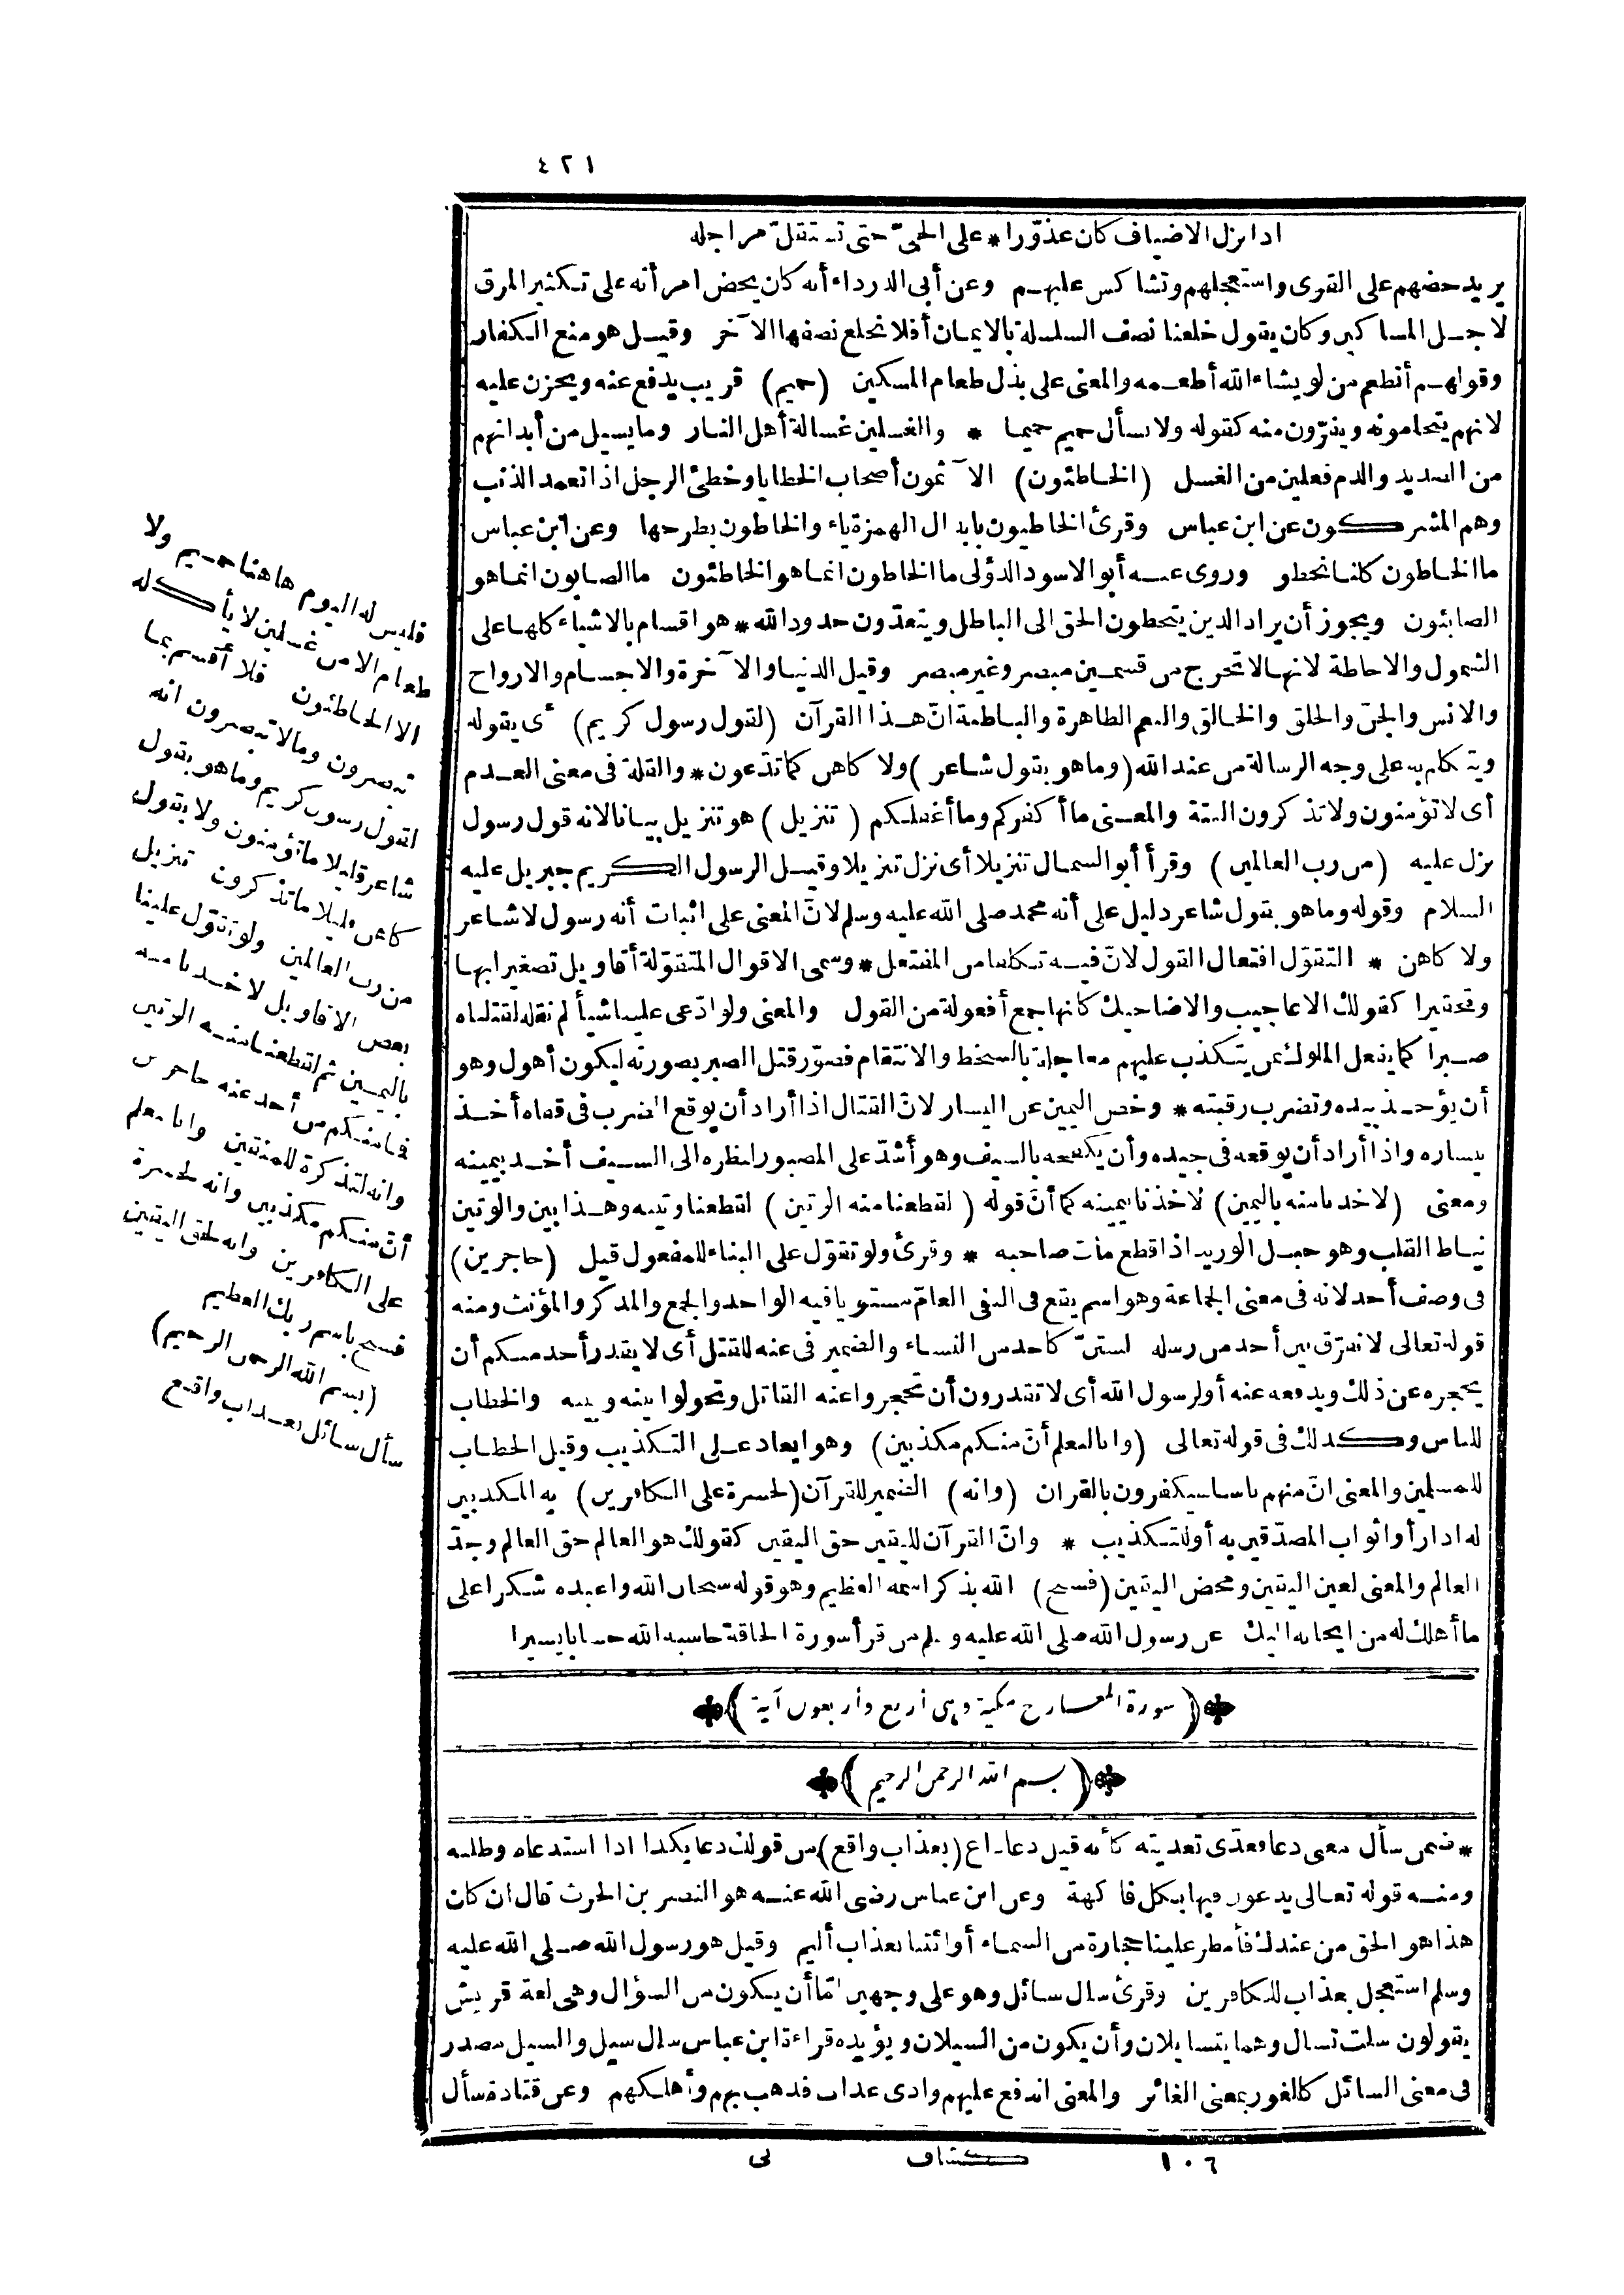 ٤٢١
اذا نزل الاضياف كان عذوّرا * على الحىّ حتى تستقلّ مراجله
يريد حضهم على القرى واستعجلهم وتشاكس عليهم وعن أبى الدرداء أنه كان يحض امرأته على تكثير المرق
لاجل المساكين وكان يقول خلعنا نصف السلسلة بالايمان أفلا نخلع نصفها الآخر وقيل هو منع الكفار
وقولهم أنطعم من لو يشاء الله أطعمه والمعنى على بذل طعام المسكين (حميم) قريب يدفع عنه ويحزن عليه
لانهم يتحامونه ويفرّون منه كقوله ولا يسأل حميم حميما * والغسلين غسالة أهل النار وما يسيل من أبدانهم
من الصديد والدم فعلين من الغسل (الخاطئون) الآثمون أصحاب الخطايا وخطئ الرجل اذا تعمد الذنب
وهم المشركون عن ابن عباس وقرئ الخاطيون بابدال الهمزة ياء والخاطون بطرحها وعن ابن عباس
ما الخاطون كلنا نخطو وروى عنه أبو الاسود الدؤلى ما الخاطون انما هو الخاطئون ما الصابون انما هو
الصابئون ويجوز أن يراد الذين يتخطون الحق الى الباطل ويتعدّون حدود الله * هو اقسام بالاشياء كلها على
الشمول والاحاطة لانها لا تخرج من قسمين مبصر وغير مبصر وقيل الدنيا والآخرة والاجسام والارواح
والانس والجن والخلق والخالق والنعم الظاهرة والباطنة انّ هذا القرآن (لقول رسول كريم) أى يقوله
ويتكلم به على وجه الرسالة من عند الله (وما هو بقول شاعر) ولا كاهن كما تدّعون * والقلة فى معنى العدم
أى لا تؤمنون ولا تذكرون البتة والمعنى ما أكفركم وما أغفلكم (تنزيل) هو تنزيل بيانا لانه قول رسول
نزل عليه (من رب العالمين) وقرأ أبو السمال تنزيلا أى نزل تنزيلا وقيل الرسول الكريم جبريل عليه
السلام وقوله وما هو بقول شاعر دليل على أنه محمد صلى الله عليه وسلم لانّ المعنى على اثبات أنه رسول لا شاعر
ولا كاهن * التقوّل افتعال القول لانّ فيه تكلفا من المفتعل * وسمى الاقوال المتقوّلة أقاويل تصغيرا بها
وتحقيرا كقولك الاعاجيب والاضاحيك كانها جمع أفعولة من القول والمعنى ولو ادّعى علينا شيأ لم نقله لقتلناه
صبرا كما يفعل الملوك بمن يتكذب عليهم معاجلة بالسخط والانتقام فصوّر قتل الصبر بصورته ليكون أهول وهو
أن يؤخذ بيده وتضرب رقبته * وخص اليمين عن اليسار لانّ القتال اذا أراد أن يوقع الضرب فى قفاه أخذ
بيساره واذا أراد أن يوقعه فى جيده وأن يكفحه بالسيف وهو أشدّ على المصبور لنظره الى السيف أخذ بيمينه
ومعنى (لاخذنا منه باليمين) لاخذنا بيمينه كما أنّ قوله (لقطعنا منه الوتين) لقطعنا وتينه وهذا بين والوتين
نياط القلب وهو حبل الوريد اذا قطع مات صاحبه * وقرئ ولو تقوّل على البناء للمفعول قيل (حاجزين)
فى وصف أحد لانه فى معنى الجماعة وهو اسم يقع فى النفى العامّ مستويا فيه الواحد والجمع والمذكر والمؤنث ومنه
قوله تعالى لا نفرّق بين أحد من رسله لستنّ كاحد من النساء والضمير فى عنه للقتل أى لا يقدر أحد منكم أن
يحجزه عن ذلك ويدفعه عنه أو لرسول الله أى لا تقدرون أن تحجزوا عنه القاتل وتحولوا بينه وبينه والخطاب
للناس وكذلك فى قوله تعالى (وانا لنعلم أنّ منكم مكذبين) وهو ايعاد على التكذيب وقيل الخطاب
للمسلمين والمعنى انّ منهم ناسا سيكفرون بالقرآن (وانه) الضمير للقرآن (لحسرة على الكافرين) به المكذبين
له اذا رأوا ثواب المصدّقين به أو للتكذيب * وانّ القرآن لليقين حق اليقين كقولك هو العالم حق العالم وجدّ
العالم والمعنى لعين اليقين ومحض اليقين (فسبح) الله بذكر اسمه العظيم وهو قوله سبحان الله واعبده شكرا على
ما أهلك له من ايحائه اليك عن رسول الله صلى الله عليه وسلم من قرأ سورة الحاقة حاسبه الله حسابا يسيرا
(سورة المعارج مكية وهى أربع وأربعون آية)
(بسم الله الرحمن الرحيم)
* ضمن سأل معنى دعا فعدّى تعديته كأنه قيل دعا داع (بعذاب واقع) من قولك دعا بكذا اذا استدعاه وطلبه
ومنه قوله تعالى يدعون فيها بكل فاكهة وعن ابن عباس رضى الله عنه هو النضر بن الحرث قال ان كان
هذا هو الحق من عندك فأمطر علينا حجارة من السماء أو ائتنا بعذاب أليم وقيل هو رسول الله صلى الله عليه
وسلم استعجل بعذاب للكافرين وقرئ سال سائل وهو على وجهين امّا أن يكون من السؤال وهى لغة قريش
يقولون سلت تسال وهما يتسايلان وأن يكون من السيلان ويؤيده قراءة ابن عباس سال سيل والسيل مصدر
فى معنى السائل كالغور بمعنى الغائر والمعنى اندفع عليهم وادى عذاب فذهب بهم وأهلكهم وعن قتادة سأل
فليس له اليوم هاهنا حميم ولا
طعام الا من غسلين لا يأكله
الا الخاطئون فلا أقسم بما
تبصرون وما لا تبصرون انه
لقول رسول كريم وما هو بقول
شاعر قليلا ما تؤمنون ولا بقول
كاهن قليلا ما تذكرون تنزيل
من رب العالمين ولو تقوّل علينا
بعض الاقاويل لاخذنا منه
باليمين ثم لقطعنا منه الوتين
فما منكم من أحد عنه حاجزين
وانه لتذكرة للمتقين وانا لنعلم
أنّ منكم مكذبين وانه لحسرة
على الكافرين وانه لحق اليقين
فسبح باسم ربك العظيم
(بسم الله الرحمن الرحيم)
سأل سائل بعذاب واقع
١٠٦ كشاف نى